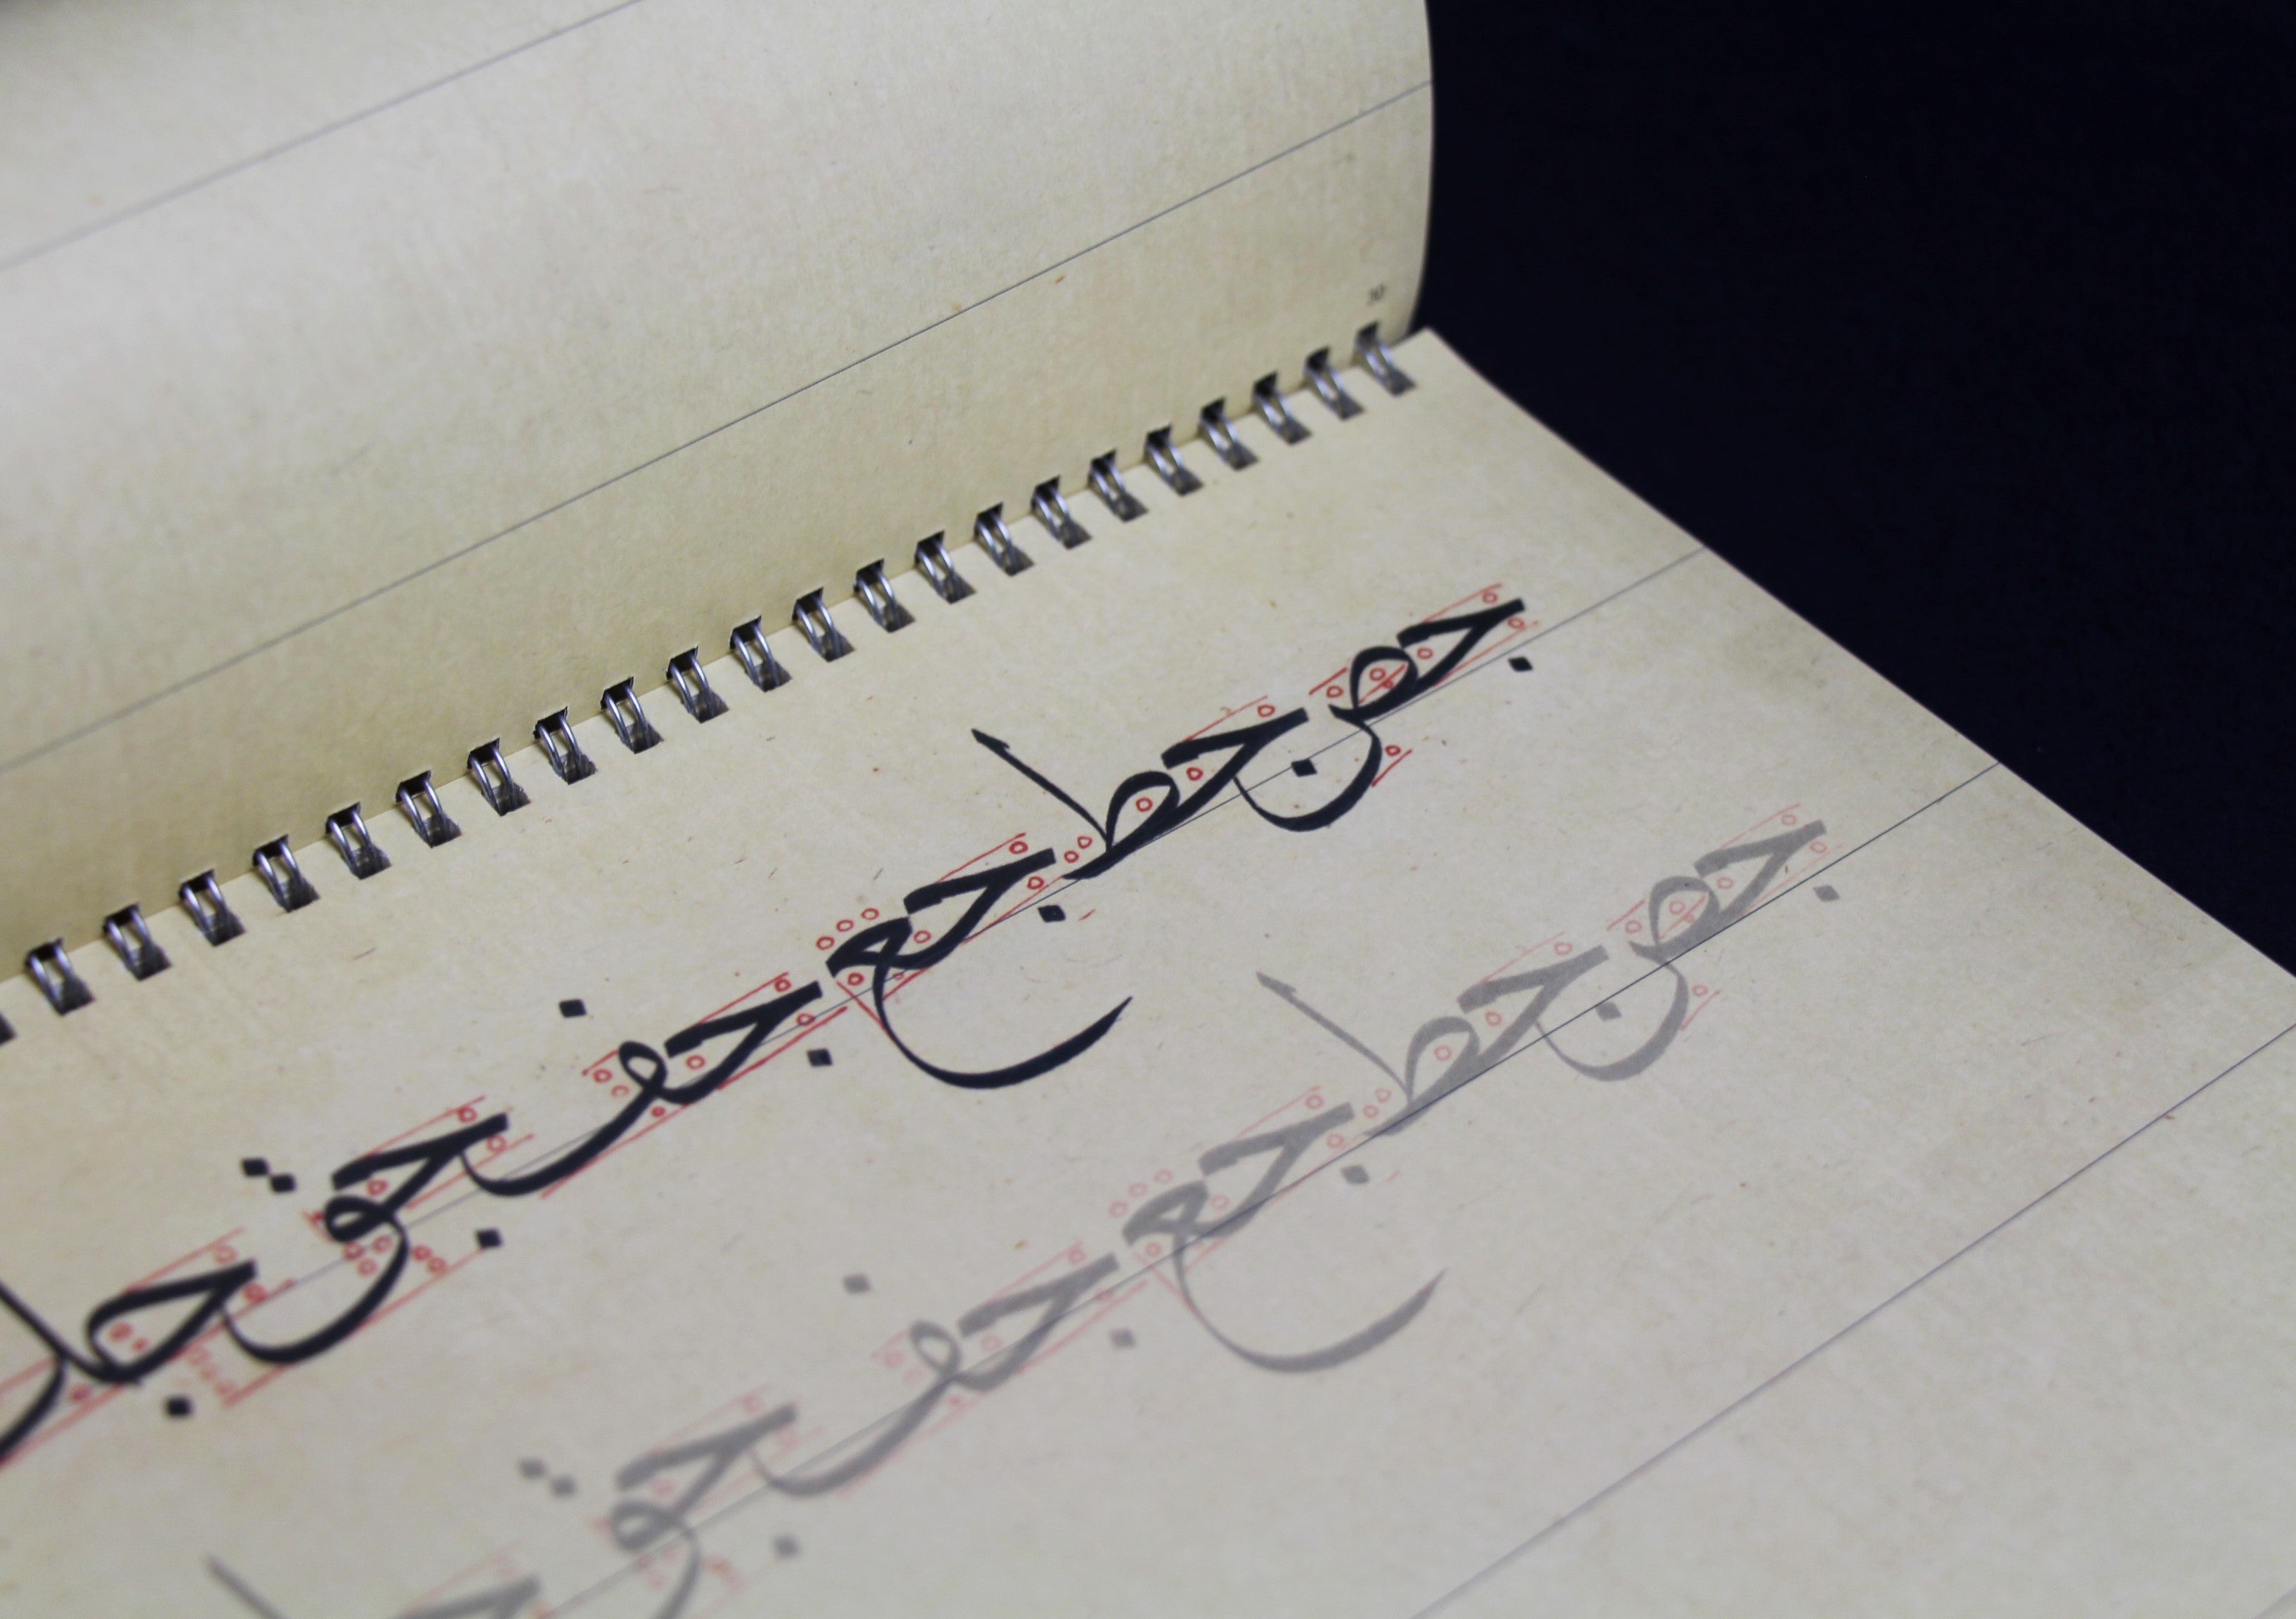 جص جط جع جف جق
جص جط جع جف جق